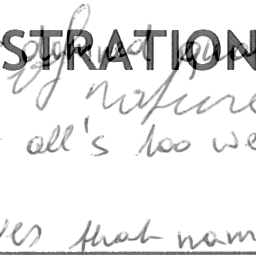 STRATION
nature
all's too we
es that nam